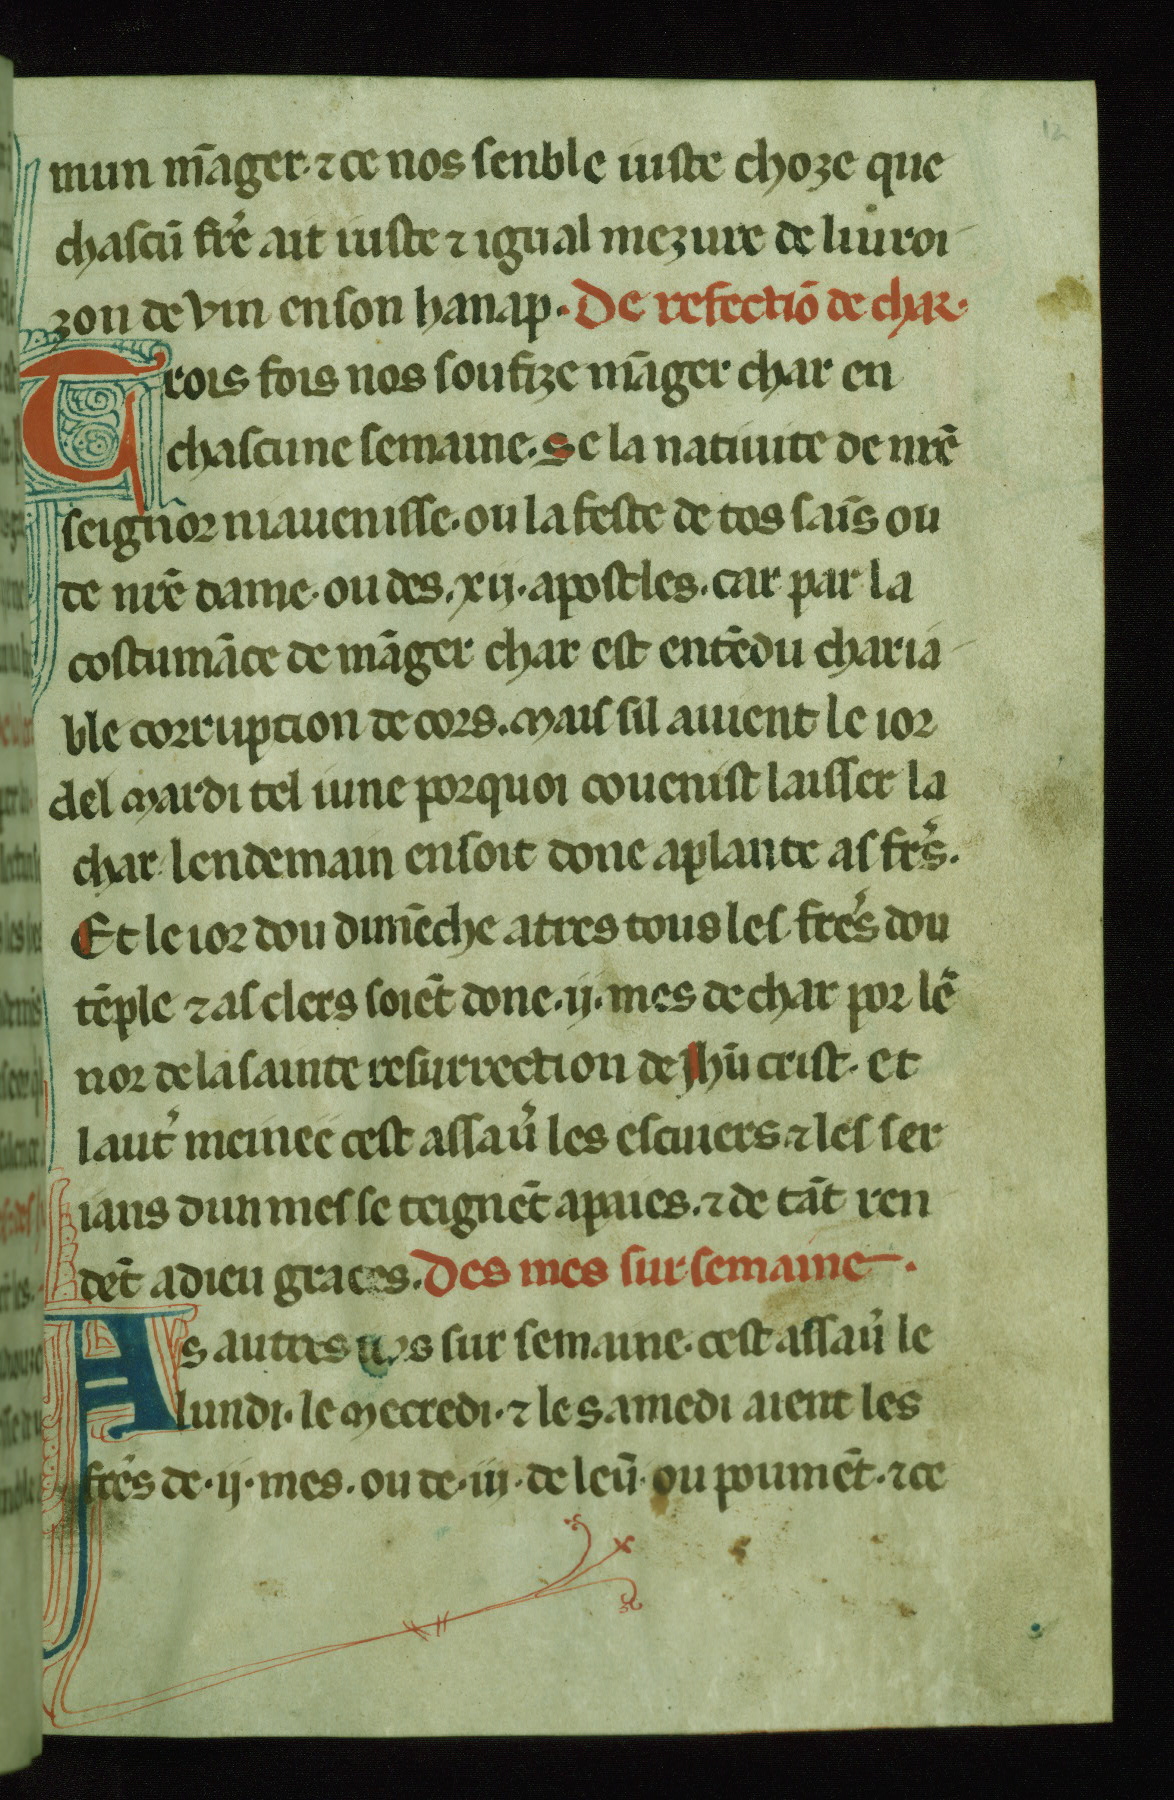 12
mun mãger· ⁊ ce nos senble iuste choze que
chascũ fr̃e ait iuste ⁊ igual mezure de liuroi
zon de vin en son hanap· De refectiõ de char·
Trois fois nos soufize mãger char en
chascune semaine· Se la natiuite de nr̃e
seignor ni auenisse· ou la feste de tos saĩs ou
de nr̃e dame· ou des· xij· apostles· car par la
costumãce de mãger char est entẽdu charia
ble corruption de cors· Mais sil auient le ior
del Mardi tel iune por quoi couenist laisser la
char· lendemain en soit done a plante as fr̃s·
Et le ior dou dimẽche a tres tous les fr̃es dou
tẽple ⁊ as clers soiẽt done· ij· mes de char por lẽ
nor de la sainte resurrection de Jhũ crist· et
laut̃ meinee cest assau̾ les escuiers ⁊ les ser
ians dun mes se teignẽt a paies· ⁊ de tãt ren
dẽt a dieu graces· Des mes sur semaine·
As autres iors sur semaine· cest assau̾ le
lundi· le Mecredi· ⁊ le Samedi aient les
fr̃es de· ij· mes· ou de· iij· de leũ· ou poumẽt· ⁊ ce